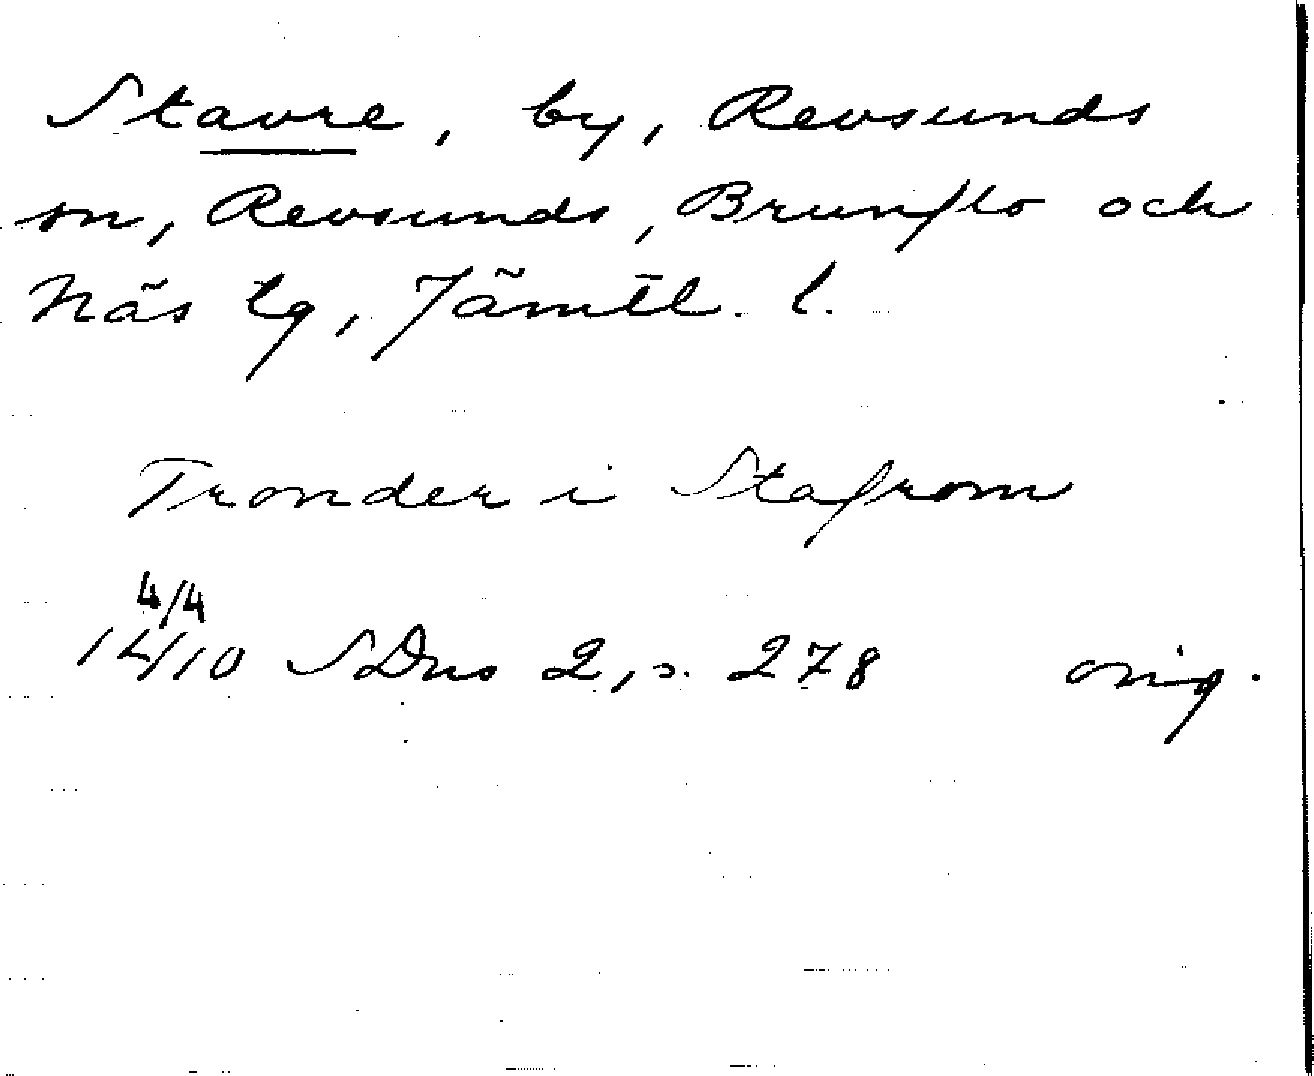 Stavre, by, Revsunds
sn, Revsunds, Brunflo och
Näs tg, Jämtl. l.
Tronder i Stafrom
4/4
1410 SDns 2, s. 278 orig.